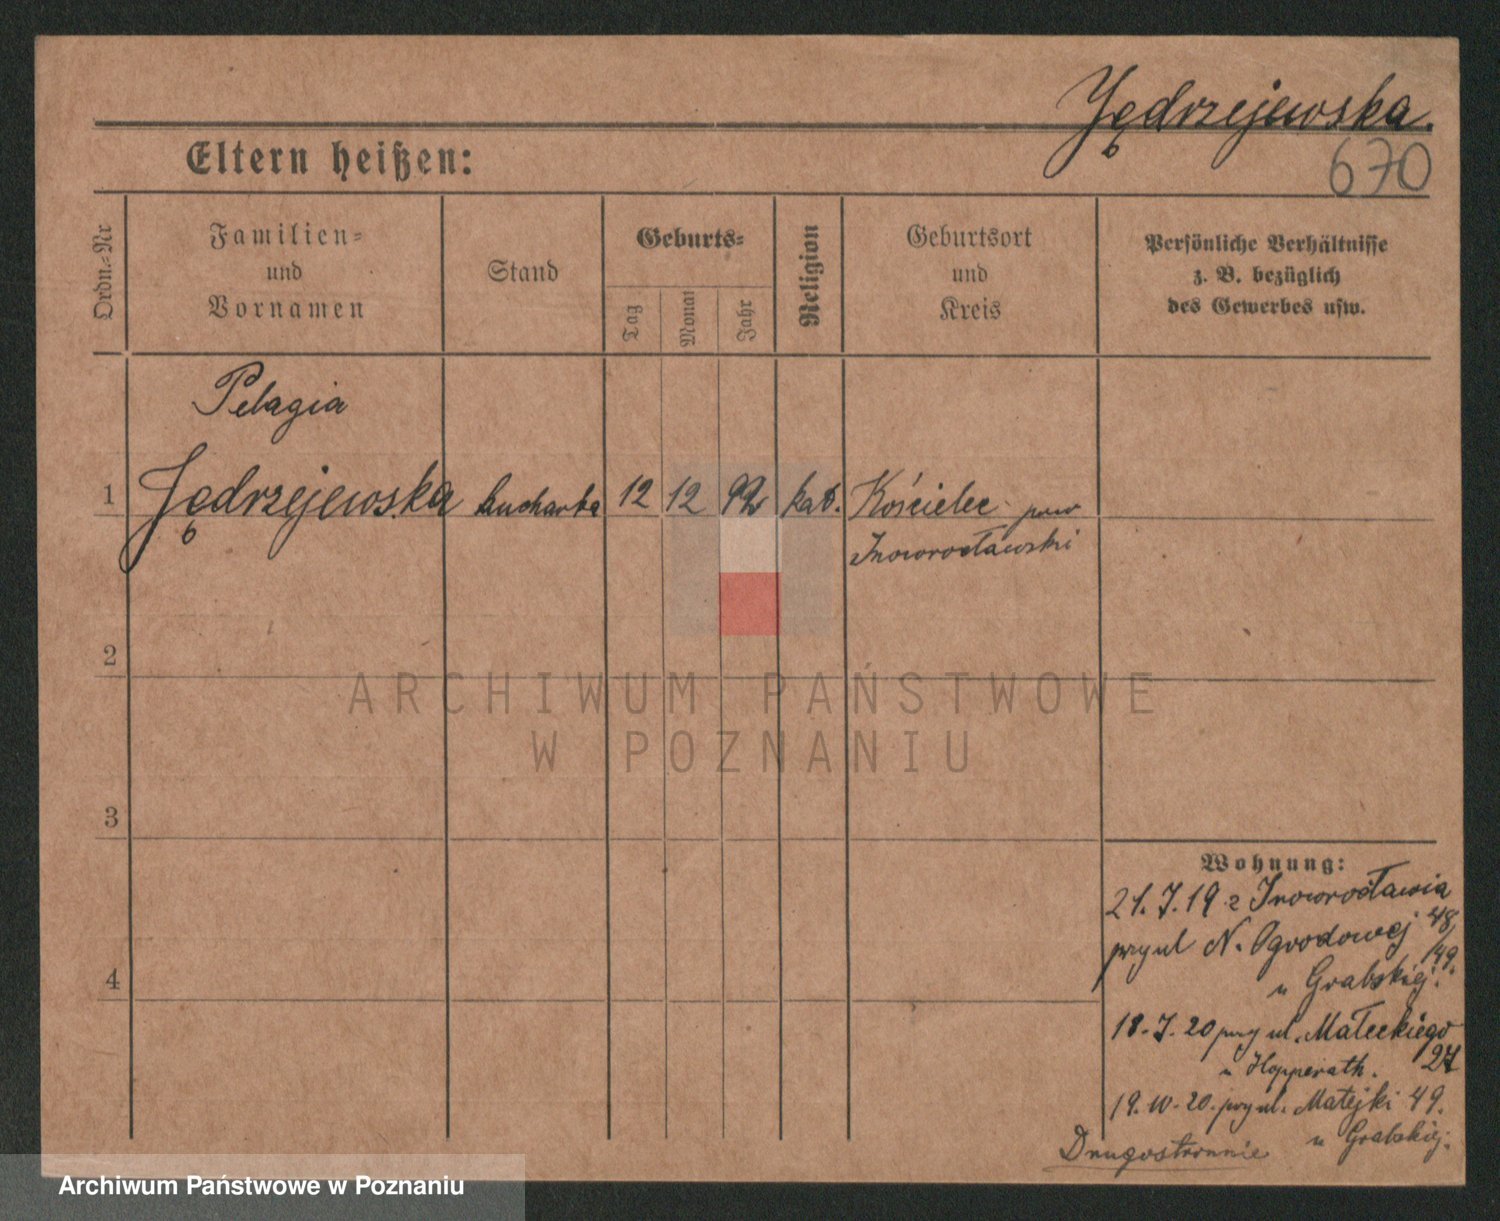 Jędrzejewska.
670
Eltern heißen:
Ordn.-Nr
Familien-
und
Vornamen
Stand
Geburts-
Tag
Monat
Jahr
Religion
Geburtsort
und
Kreis
Persönliche Verhältnisse
z. B. bezüglich
des Gewerbes usw.
Pelagia
1 Jędrzejewska kucharka 12 12 92 kat. Kościelec pow
Inowrocławski
2
ARCHIWUM PAŃSTWOWE
W POZNANIU
3
4
Wohnung:
21. 7. 19 z Inowrocławia
przy ul N. Ogrodowej 48/49.
u Grabskiej.
18. 7. 20 przy ul. Małeckiego
27
u Hopperath.
19. 10. 20. przy ul. Matejki 49.
u Grabskiej.
Drugostronnie
Archiwum Państwowe w Poznaniu